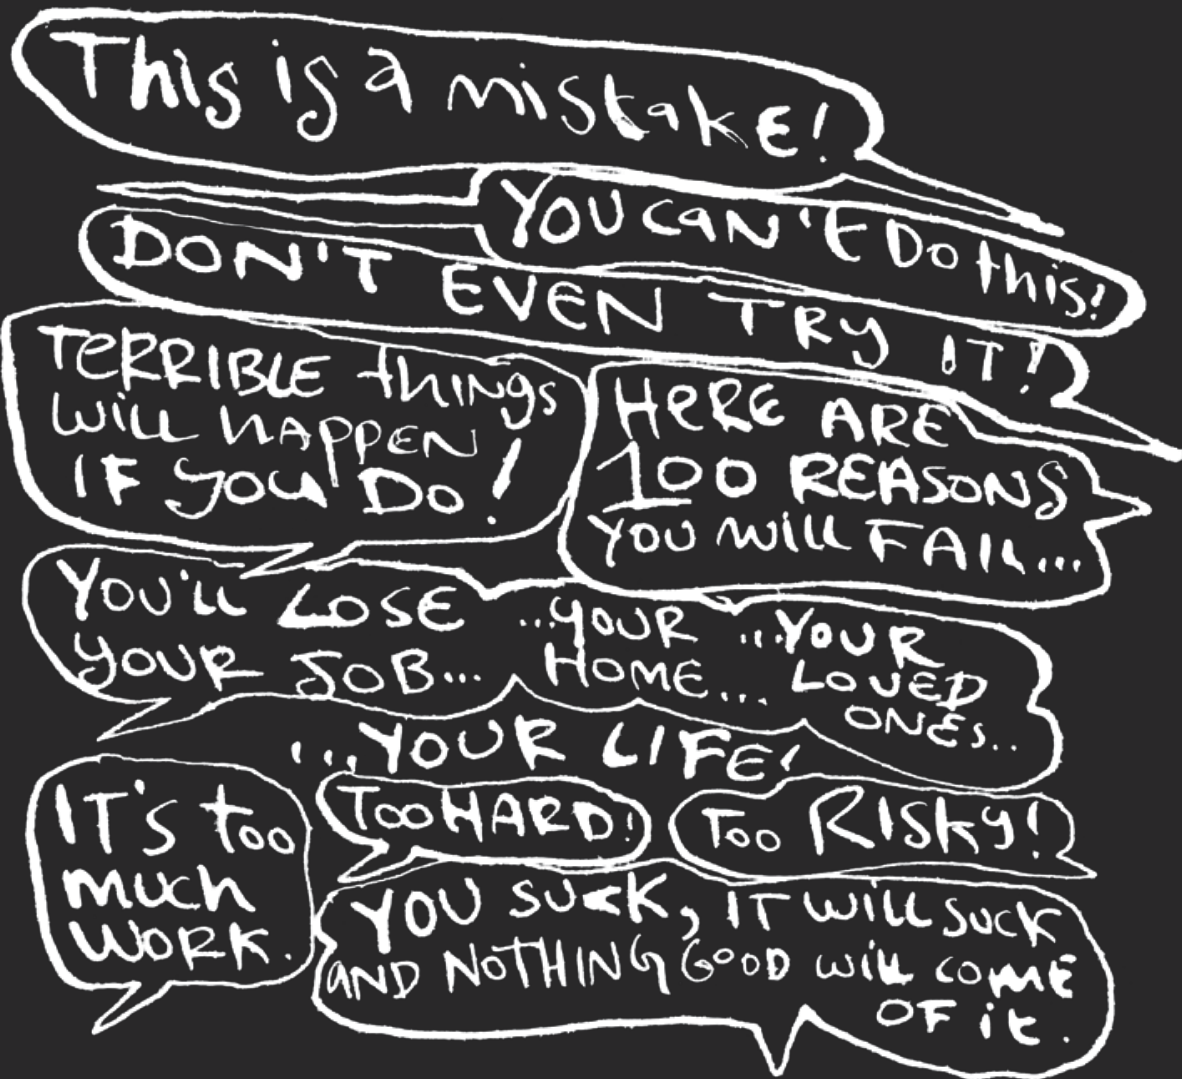 This is a mistake!
YOU CAN't Do this!
DON'T EVEN TRY IT!
TERRIBLE things
will HAPPEN
IF you Do!
HERE ARE
100 REASONS
YOU Will FAIL...
YOU'll LOSE
YOUR JOB...
...YOUR
HOME...
...YOUR
LOVED
ONES...
...YOUR LIFE!
IT'S too
much
WORK.
Too HARD!
Too RISKY!
YOU SUCK, IT Will SUCK
AND NOTHING GOOD will COME
OF it.